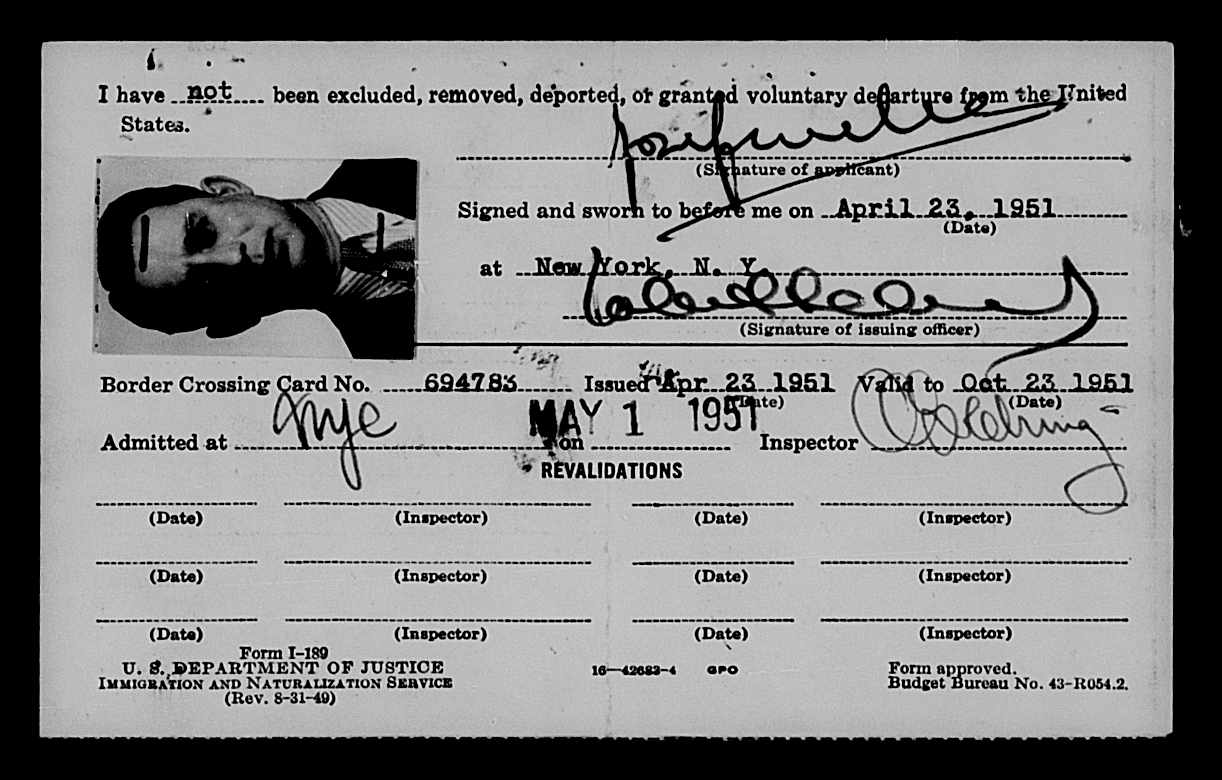 I have not been excluded, removed, deported, or granted voluntary departure from the United
States.
(Signature of applicant)
Signed and sworn to before me on April 23, 1951
(Date)
at New York, N. Y.
(Signature of issuing officer)
Border Crossing Card No. 694783 Issued Apr 23 1951 Valid to Oct 23 1951
(Date) (Date)
Admitted at nyc on MAY 1 1951 Inspector
REVALIDATIONS
(Date) (Inspector) (Date) (Inspector)
(Date) (Inspector) (Date) (Inspector)
(Date) (Inspector) (Date) (Inspector)
Form I-189
U. S. DEPARTMENT OF JUSTICE 16—42683-4 GPO Form approved.
IMMIGRATION AND NATURALIZATION SERVICE Budget Bureau No. 43-R054.2.
(Rev. 8-31-49)